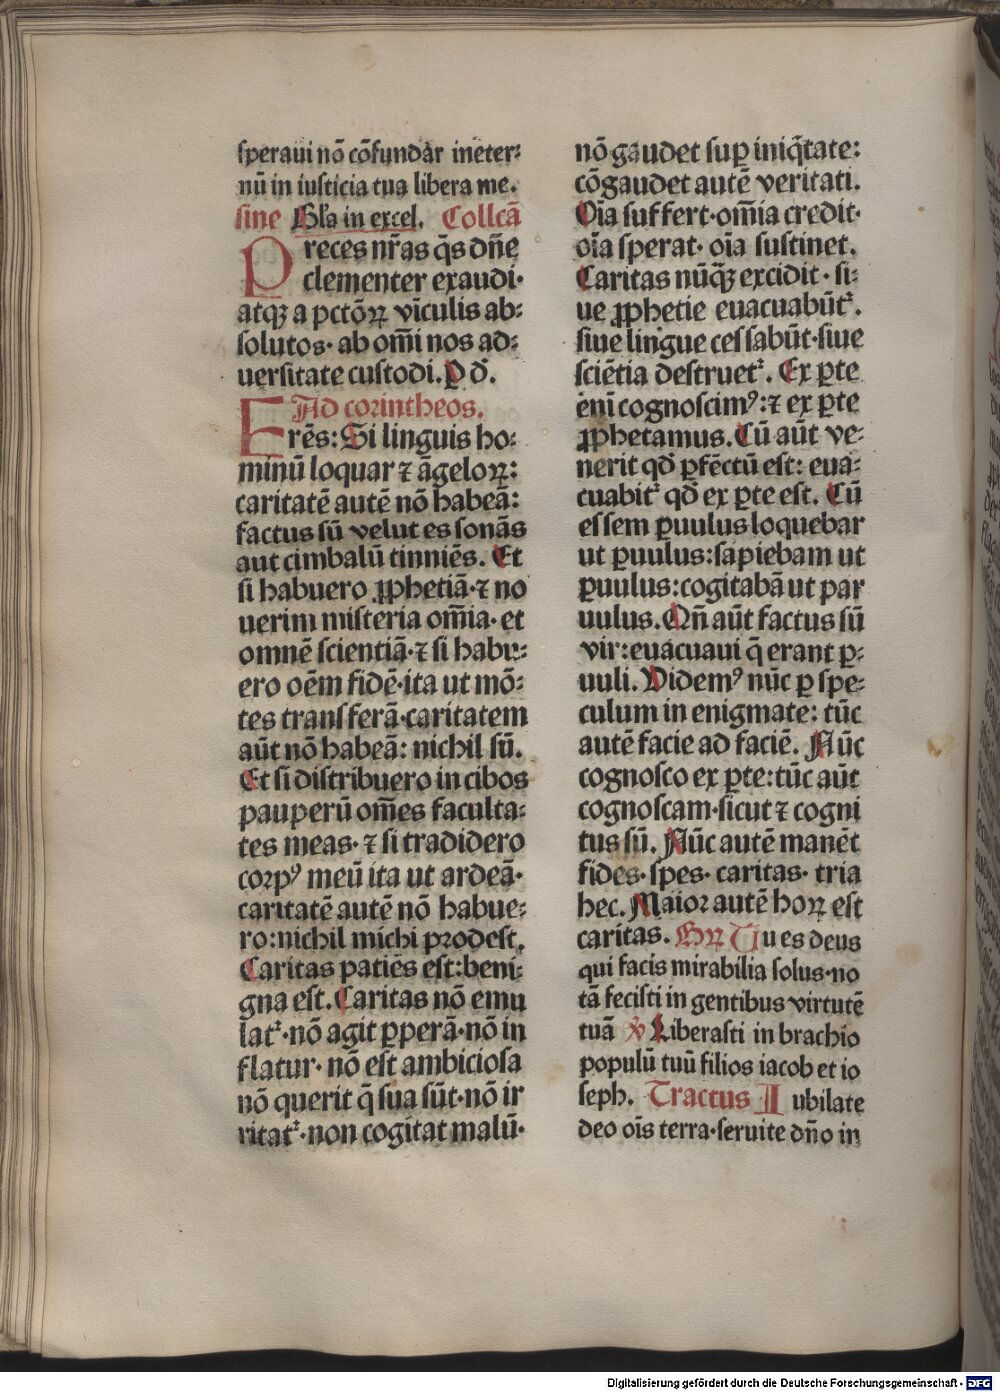 ſperaui nō cōfundar ineter⸗
nū in iuſticia tua libera me.
ſine Gl̄a in excel. Collcā
Preces nr̄as q̄s dn̄e
clementer exaudi·
atqꝫ a pctōꝝ vīculis ab⸗
ſolutos· ab om̄i nos ad⸗
uerſitate cuſtodi. P d̄.
Ad corintheos.
Frēs: Si linguis ho⸗
minū loquar ⁊ āgeloꝝ:
caritatē autē nō habeā:
factus ſū velut es ſonās
aut cimbalū tinniēs. Et
ſi habuero ꝓphetiā·⁊ no
uerim miſteria om̄ia· et
omnē ſcientiā·⁊ ſi habu⸗
ero oēm fidē·ita ut mō⸗
tes tranſferā·caritatem
aūt nō habeā: nichil ſū.
Et ſi diſtribuero in cibos
pauperū om̄es faculta⸗
tes meas· ⁊ ſi tradidero
corpꝰ meū ita ut ardeā·
caritatē autē nō habue⸗
ro:nichil michi prodeſt.
Caritas patiēs eſt:beni⸗
gna eſt. Caritas nō emu
lat᷑·nō agit ꝑperā·nō in
flatur· nō eſt ambicioſa
nō querit q̄ ſua ſūt·nō ir
ritat᷑·non cogitat malū·
nō gaudet ſuꝑ iniq̄tate:
cōgaudet autē veritati.
Oīa ſuffert·om̄ia credit·
oīa ſperat· oīa ſuſtinet.
Caritas nūqꝫ excidit· ſi⸗
ue ꝓphetie euacuabūt᷑.
ſiue lingue ceſſabūt·ſiue
ſciētia deſtruet᷑. Ex ꝑte
enī cognoſcimꝰ:⁊ ex ꝑte
ꝓphetamus. Cū aūt ve⸗
nerit qd̄ ꝑfēctū eſt: eua⸗
cuabit᷑ qd̄ ex ꝑte eſt. Cū
eſſem ꝑuulus loquebar
ut ꝑuulus:ſapiebam ut
ꝑuulus:cogitabā ut par
uulus. Qn̄ aūt factus ſū
vir:euacuaui q̄ erant ꝑ⸗
uuli. Videmꝰ nūc ꝑ ſpe⸗
culum in enigmate: tūc
autē facie ad faciē. Nūc
cognoſco ex ꝑte:tūc aūt
cognoſcam·ſicut ⁊ cogni
tus ſū. Nūc autē manēt
fides· ſpes· caritas· tria
hec. Maior autē hoꝝ eſt
caritas. Gꝝ Tu es deus
qui facis mirabilia ſolus·no
tā feciſti in gentibus virtutē
tuā ꝟ Liberaſti in brachio
populū tuū filios iacob et io
ſeph. Tractus Iubilate
deo oīs terra·ſeruite dn̄o in
Digitalisierung gefördert durch die Deutsche Forschungsgemeinschaft - DFG